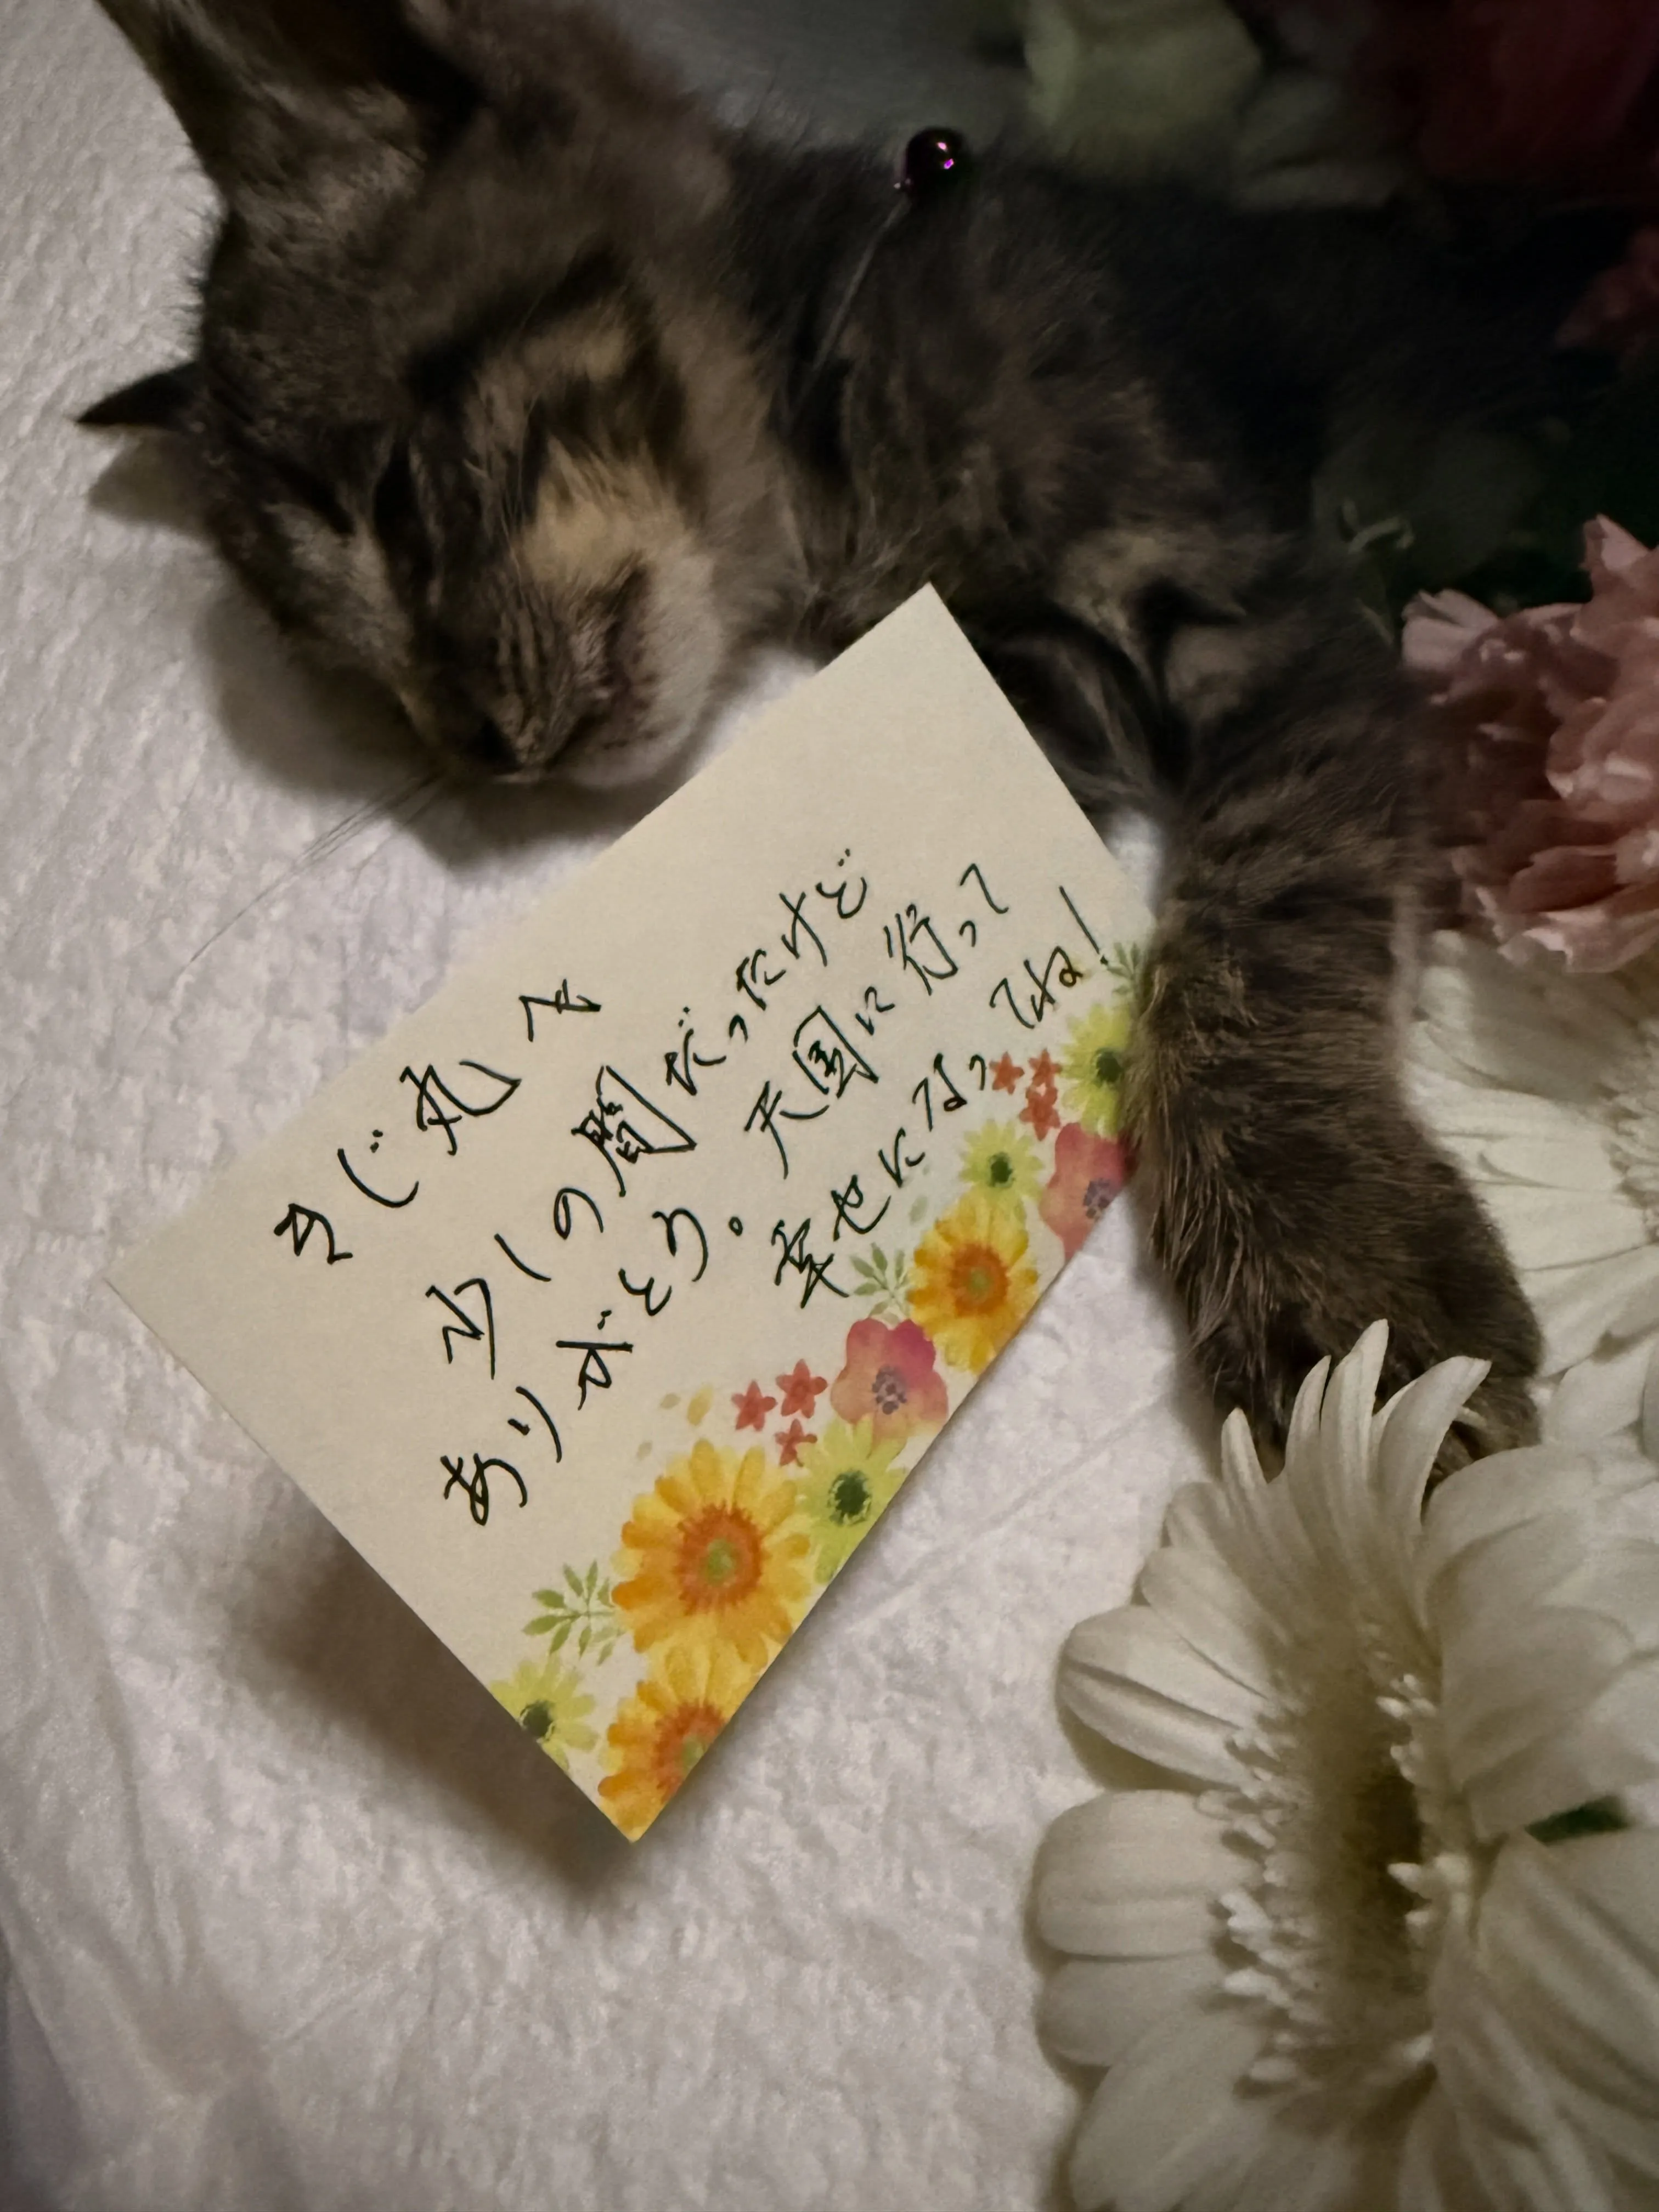 きじ丸へ
少しの間だったけど
ありがとう。天国に行って
幸せになってね!